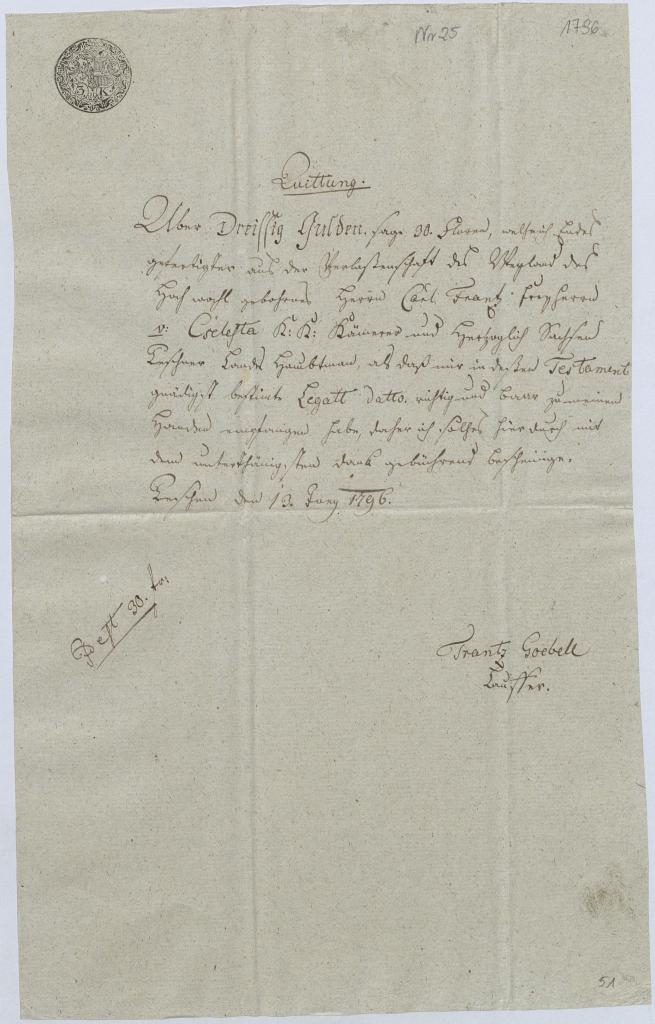 Nr 25
1796
3 K
Quittung.
Über Dreissig Gulden, sage 30. Floren, welche ich Endes
gefertigter aus der Verlassenschaft des Weyland des
Hoch wohl gebohrnes Herrn Carl Frantz Freyherrn
v: Cselesta K: K: Kämerer und Hertzoglich Sachsen
Teschner Landes Haubtman, als daß mir in dessen Testament
gnädigst bestimte Legatt datto. richtig und baar zu meinen
Handen empfangen habe, daher ich solches hier durch mit
dem unterthänigsten Dank gebührend bescheinige.
Teschen den 13. Juny 1796.
30.
Frantz Goebell
Lauffer.
51